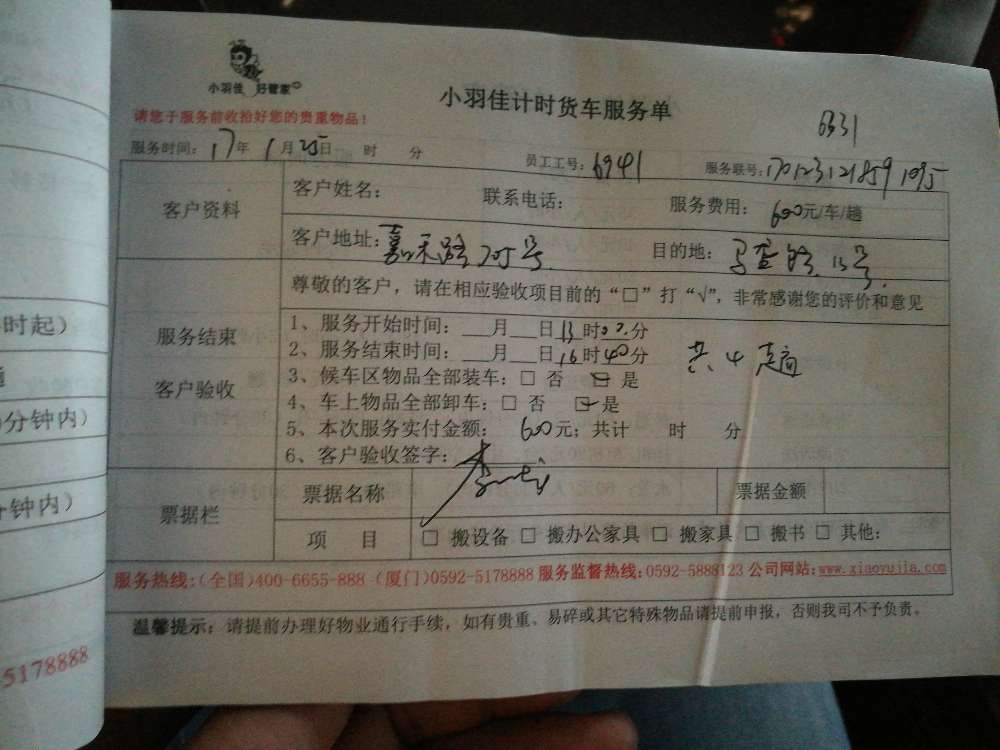 小羽佳 好管家
小羽佳计时货车服务单
6331
请您于服务前收拾好您的贵重物品！
服务时间：17年1月25日 时 分 员工工号：6941 服务联号：1701231218591095
客户资料
客户姓名： 联系电话： 服务费用：600元/车/趟
客户地址：嘉禾路705号 目的地：13号
服务结束
客户验收
尊敬的客户，请在相应验收项目前的“□”打“√”，非常感谢您的评价和意见
1、服务开始时间： 月 日13时07分
2、服务结束时间： 月 日16时40分
共4趟
3、候车区物品全部装车：□ 否 □ 是
4、车上物品全部卸车：□ 否 □ 是
5、本次服务实付金额：600元；共计 时 分
6、客户验收签字：
票据栏
票据名称 票据金额
项 目 □ 搬设备 □ 搬办公家具 □ 搬家具 □ 搬书 □ 其他：
服务热线：(全国)400-6655-888 (厦门)0592-5178888 服务监督热线：0592-5888123 公司网站：www.xiaoyujia.com
温馨提示：请提前办理好物业通行手续，如有贵重、易碎或其它特殊物品请提前申报，否则我司不予负责。
时起）
分钟内）
钟内）
5178888